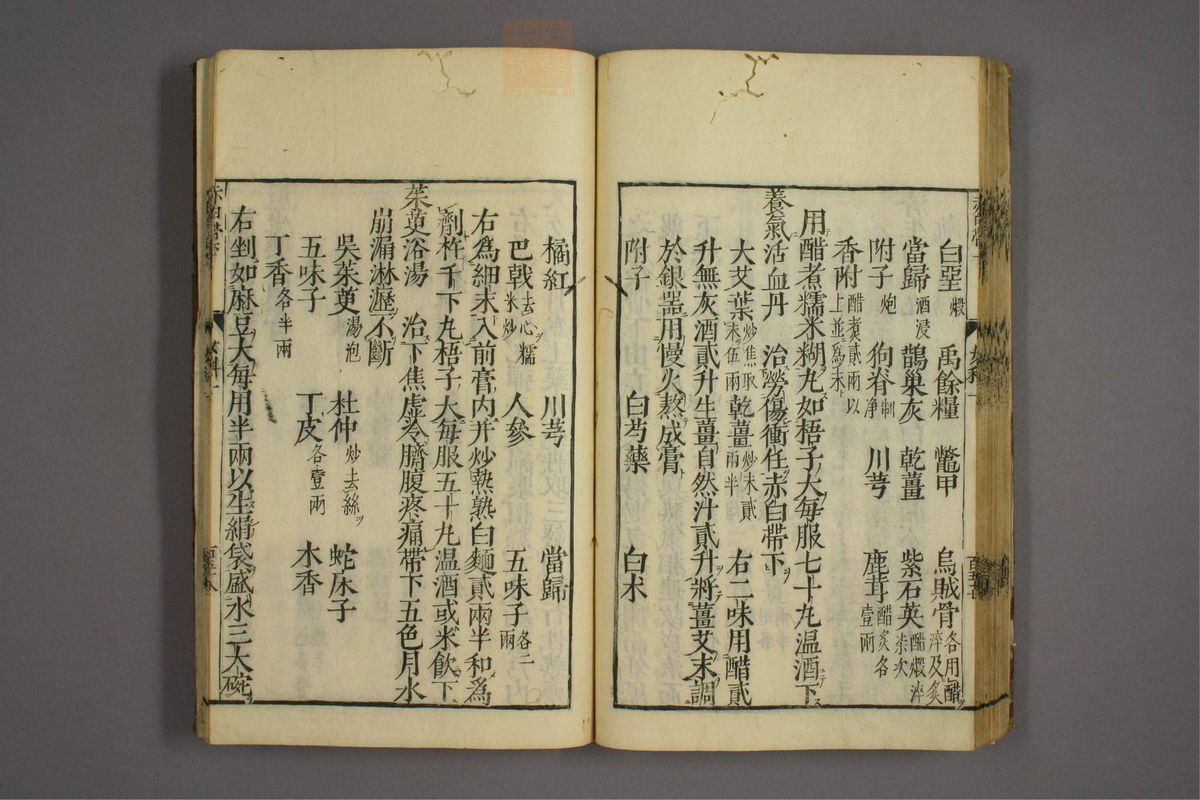 白堊煅　禹餘糧　鼈甲　烏賊骨各用醋淬及炙
當歸酒浸　鵲巢灰　乾薑　紫石英醋煅淬柒次
附子炮　狗脊制淨　川芎　鹿茸醋炙各壹兩
香附醋煮貳兩以上並爲末
用醋煮糯米糊丸如梧子大每服七十丸温酒下
養氣活血丹　治勞傷衝任赤白帶下
大艾葉炒焦取末伍兩　乾薑炒末貳兩半　右二味用醋貳
升無灰酒貳升生薑自然汁貳升將薑艾末調
於銀器用慢火熬成膏
附子　白芍藥　白朮
橘紅　川芎　當歸
巴戟去心糯米炒　人參　五味子各二兩
右爲細末入前膏内并炒熱熟白麵貳兩半和爲
劑杵千下丸梧子大每服五十丸温酒或米飲下
茱萸浴湯　治下焦虛冷臍腹疼痛帶下五色月水
崩漏淋瀝不斷
吳茱萸湯泡　杜仲炒去絲　蛇床子
五味子　丁皮各壹兩　木香
丁香各半兩
右剉如麻豆大每用半兩以生絹袋盛水三大碗